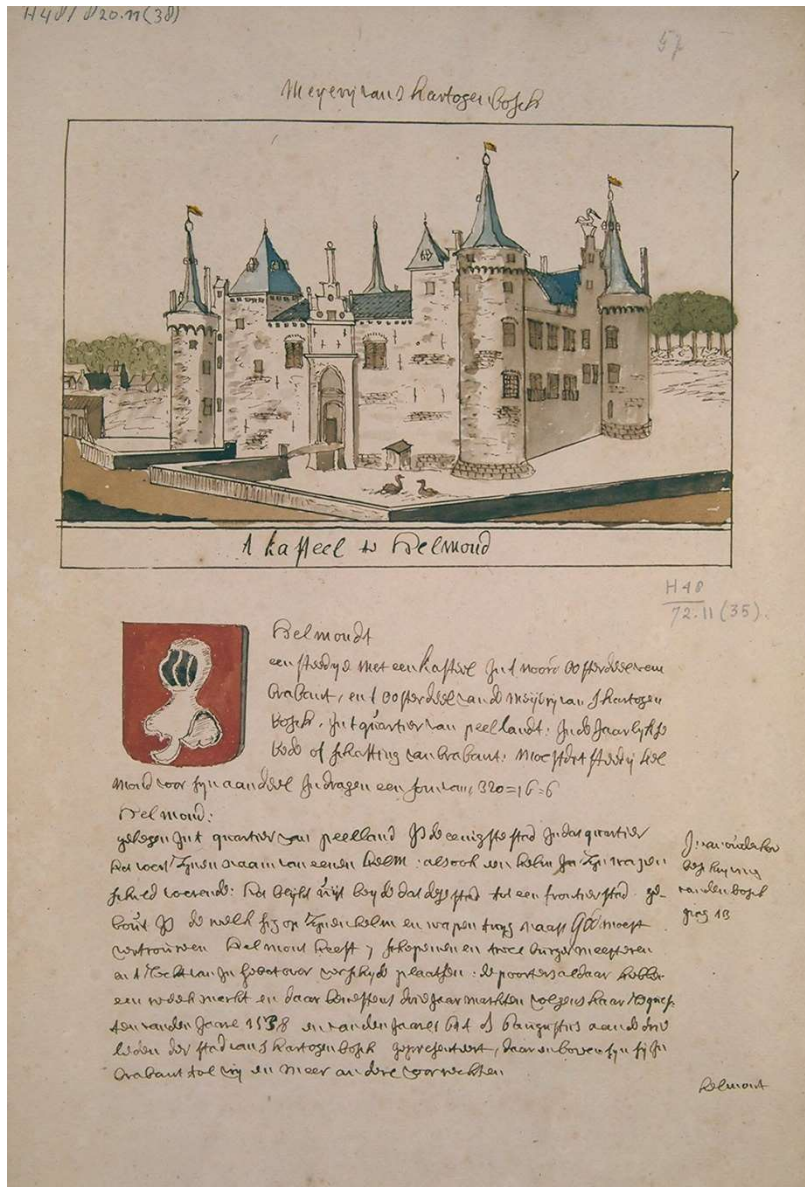 H48/820.11(38)
57
Meyerij van s hartogenbosch
t kasteel te Helmond
H48
72.11(35).
Helmondt
een stedije met een kasteel in t noord oosterdeel van
brabant, en t oosterdeel van de meijerij van s hartogen
bosch, in t quartier van peellandt: in de jaarlijkse
bede of schatting van brabant: moest dit stedtij hel
mond voor sijn aandeel indragen een som van, 320=16=6
Helmond:
gelegen in t quartier van peelland is de eenigste stad in dat quartier
het voert zijnen naam van eenen helm: alsook een helm in zijn wapen
schild voerende: het blijkt uijt beijde dat dese stad tot een frontier stad ge-
bout is de welk sig op zijnen helm en wapen naast God moest
vertrouwen Helmont heeft 7 schepenen en twee burgermeesteren
en t recht van in gebot over plaatsen: de poorters aldaar hebben
een week merkt en daar beneffens drie jaar markten volgens haar
ten van den jaare 1538 en van den jaare 6 augustus aan de drie
leden der stad van s hartogenbosch gepresenteert, daar en boven sijn sij in
brabant tol vrij en meer andere voorrechten
J: van oudenhov
beschrijving
van den bosch
pag 13
Helmont